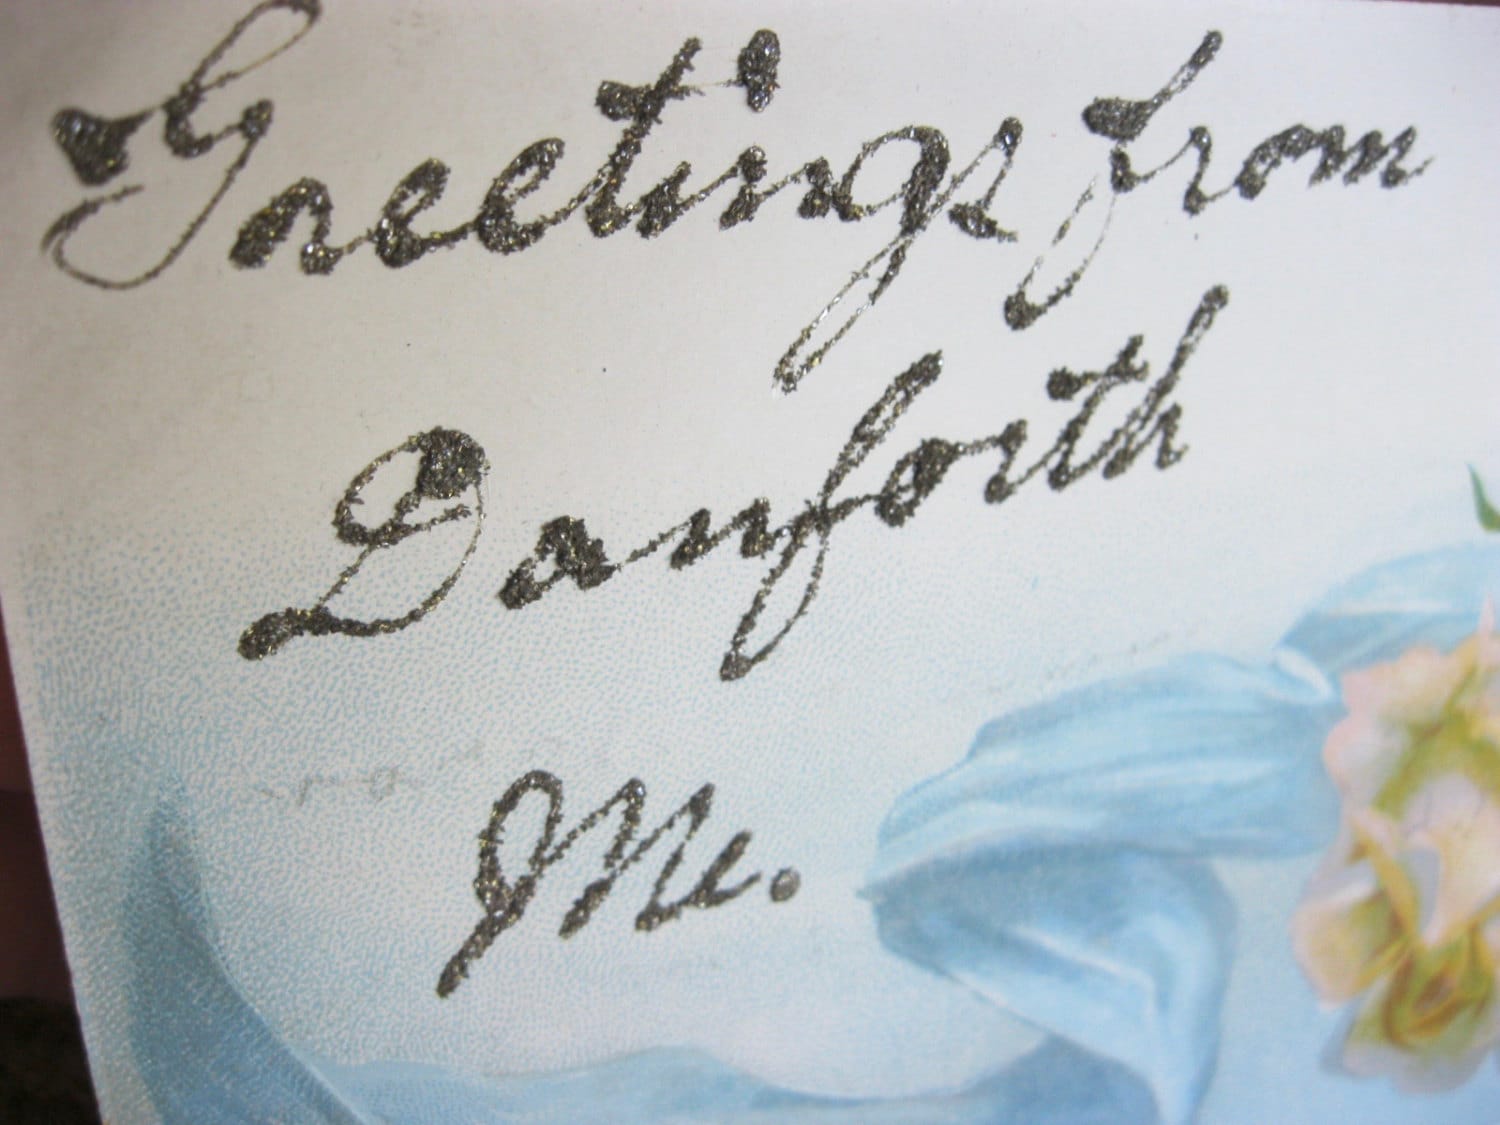 Greetings from
Danforth
Me.